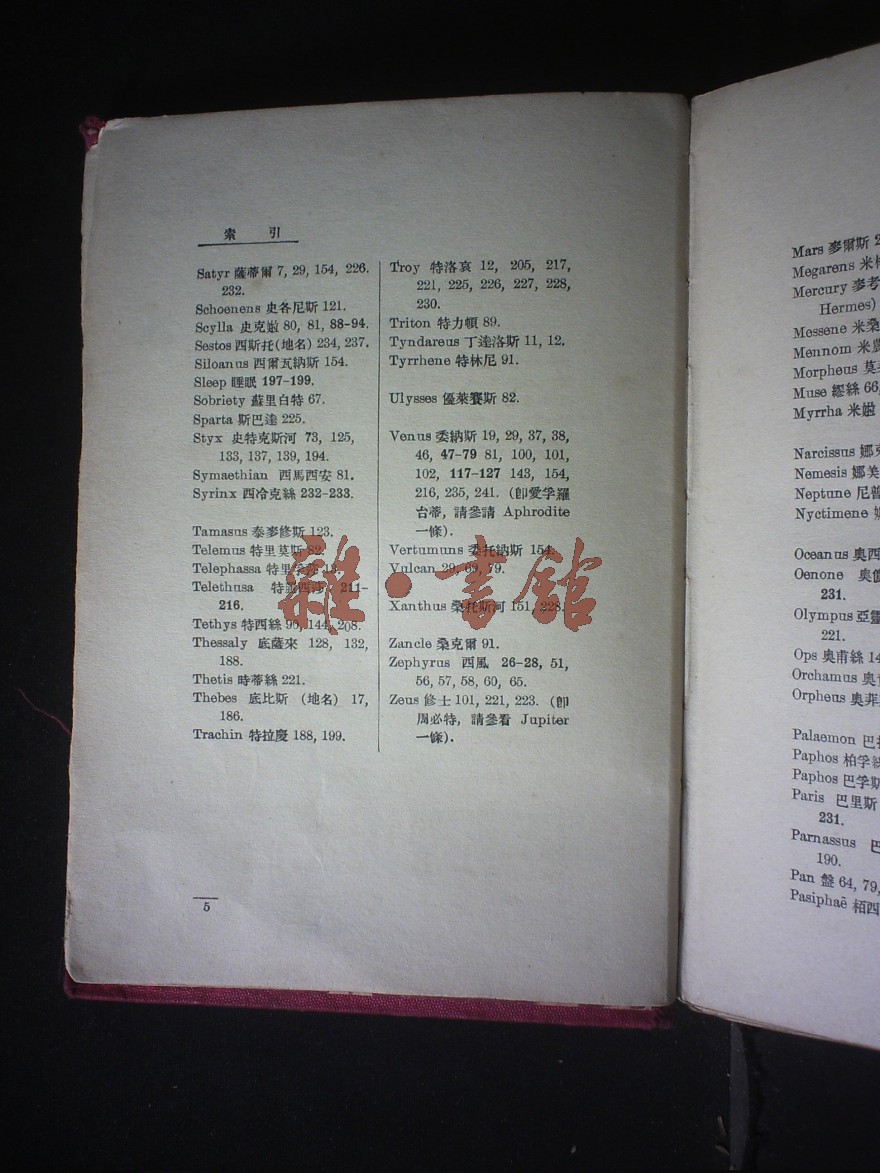 索 引
Satyr 薩蒂爾 7, 29, 154, 226.
232.
Schoenens 史各尼斯 121.
Scylla 史克嫩 80, 81, 88-94.
Sestos 西斯托(地名) 234, 237.
Siloanus 西爾瓦納斯 154.
Sleep 睡眠 197-199.
Sobriety 蘇里白特 67.
Sparta 斯巴達 225.
Styx 史特克斯河 73, 125,
133, 137, 139, 194.
Symaethian 西馬西安 81.
Syrinx 西冷克絲 232-233.
Tamasus 泰麥修斯 123.
Telemus 特里莫斯 82.
Telephassa 特里孚莎 13.
Telethusa 特 211-
216.
Tethys 特西絲 90, 144, 208.
Thessaly 底薩來 128, 132,
188.
Thetis 時蒂絲 221.
Thebes 底比斯 (地名) 17,
186.
Trachin 特拉慶 188, 199.
Troy 特洛哀 12, 205, 217,
221, 225, 226, 227, 228,
230.
Triton 特力頓 89.
Tyndareus 丁達洛斯 11, 12.
Tyrrhene 特林尼 91.
Ulysses 優萊賽斯 82.
Venus 委納斯 19, 29, 37, 38,
46, 47-79 81, 100, 101,
102, 117-127 143, 154,
216, 235, 241. (卽愛孚羅
台蒂, 請參請 Aphrodite
一條).
Vertumuns 委托納斯 154.
Vulcan 29, 69, 79.
Xanthus 桑托斯河 151, 228.
Zancle 桑克爾 91.
Zephyrus 西風 26-28, 51,
56, 57, 58, 60, 65.
Zeus 修士 101, 221, 223. (卽
周必特, 請參看 Jupiter
一條).
5
雜·書館
Mars 麥爾斯 2
Megarens 米
Mercury 麥考
Hermes)
Messene 米桑
Mennom 米農
Morpheus 莫
Muse 繆絲 66,
Myrrha 米
Narcissus 娜克
Nemesis 娜美
Neptune 尼普
Nyctimene
Oceanus 奧西
Oenone 奧
231.
Olympus 亞靈
221.
Ops 奧甫絲 14
Orchamus 奧
Orpheus 奧菲
Palaemon 巴
Paphos 柏孚
Paphos 巴孚斯
Paris 巴里斯
231.
Parnassus 巴
190.
Pan 盤 64, 79,
Pasiphaë 栢四